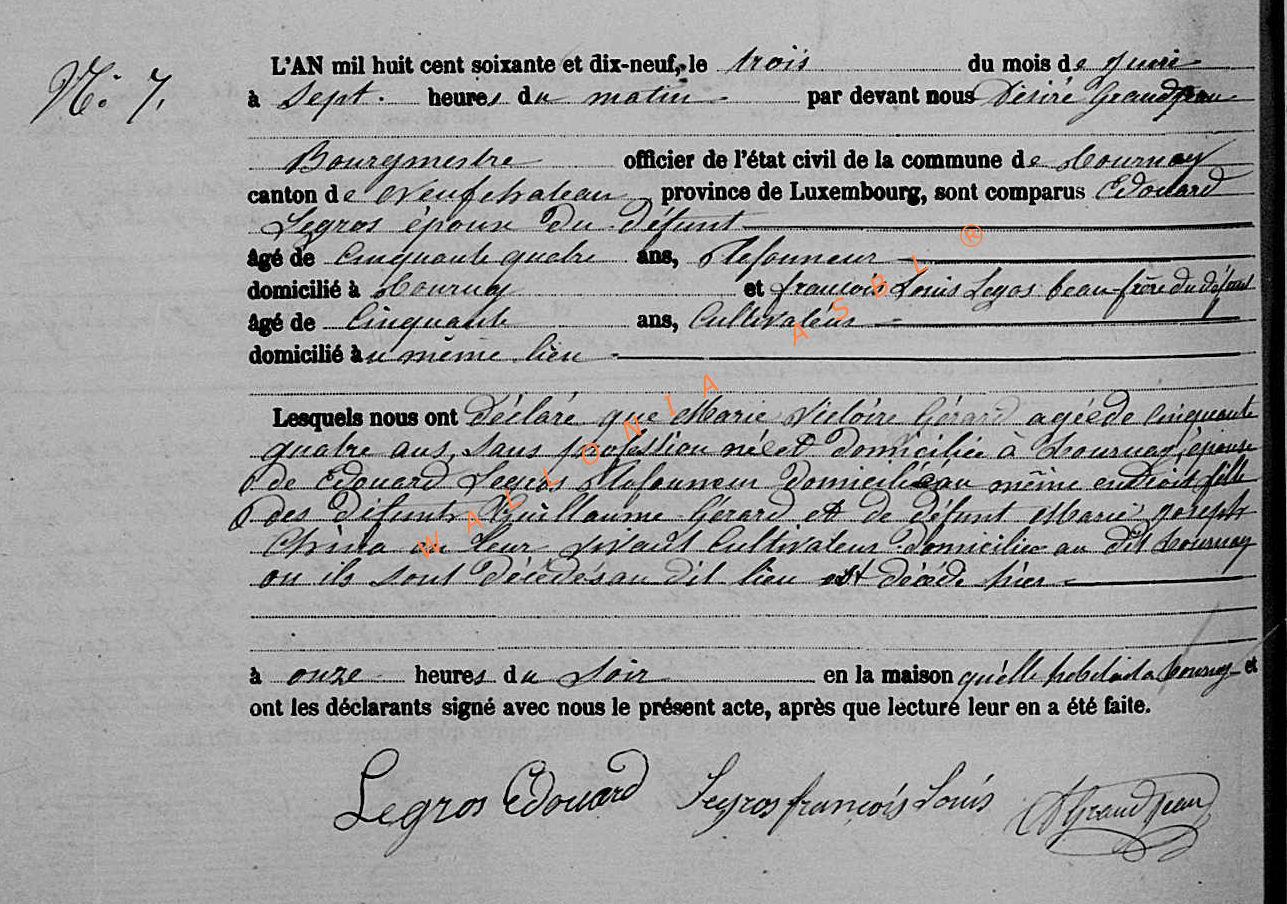 N° 7.
L'AN mil huit cent soixante et dix-neuf, le trois du mois de juin
à sept heures du matin par devant nous Désiré Grandjean
Bourgmestre officier de l'état civil de la commune de Tournay
canton de Neufchateau province de Luxembourg, sont comparus Edouard
Legros époux du défunt
âgé de Cinquante quatre ans, Plafonneur
domicilié à Tournay et françois Louis Legros beau-frère du défunt
âgé de Cinquante ans, Cultivateur
domicilié au même lieu
Lesquels nous ont déclaré que Marie Victoire Gérard agée de Cinquante
quatre ans, sans profession née et domiciliée à Tournay, épouse
de Edouard Legros Plafonneur domicilié au même endroit fille
des défunts Guillaume Gérard et de défunt Marie joseph
leur vivant Cultivateur domicilié au dit Tournay
ou ils sont décédés au dit lieu est décédé hier
à onze heures du soir en la maison qu'elle habitait a Tournay et
ont les déclarants signé avec nous le présent acte, après que lecture leur en a été faite.
Legros Edouard Legros françois Louis DGrandjean
WALLONIA ASBL ®